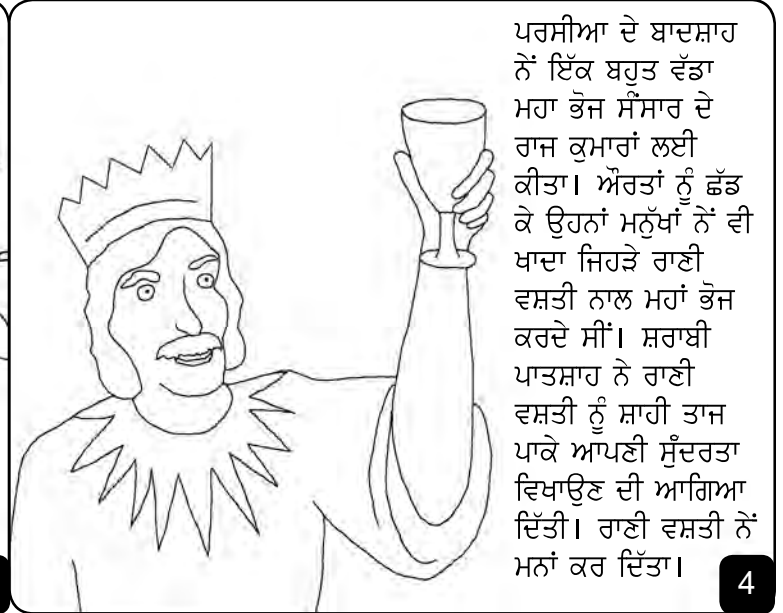 ਪਰਸੀਆ ਦੇ ਬਾਦਸ਼ਾਹ
ਨੇਂ ਇੱਕ ਬਹੁਤ ਵੱਡਾ
ਮਹਾ ਭੋਜ ਸੰਸਾਰ ਦੇ
ਰਾਜ ਕੁਮਾਰਾਂ ਲਈ
ਕੀਤਾ। ਔਰਤਾਂ ਨੂੰ ਛੱਡ
ਕੇ ਉਹਨਾਂ ਮਨੁੱਖਾਂ ਨੇਂ ਵੀ
ਖਾਦਾ ਜਿਹੜੇ ਰਾਣੀ
ਵਸ਼ਤੀ ਨਾਲ ਮਹਾਂ ਭੋਜ
ਕਰਦੇ ਸੀਂ। ਸ਼ਰਾਬੀ
ਪਾਤਸ਼ਾਹ ਨੇ ਰਾਣੀ
ਵਸ਼ਤੀ ਨੂੰ ਸ਼ਾਹੀ ਤਾਜ
ਪਾਕੇ ਆਪਣੀ ਸੁੰਦਰਤਾ
ਵਿਖਾਉਣ ਦੀ ਆਗਿਆ
ਦਿੱਤੀ। ਰਾਣੀ ਵਸ਼ਤੀ ਨੇਂ
ਮਨਾਂ ਕਰ ਦਿੱਤਾ।
4